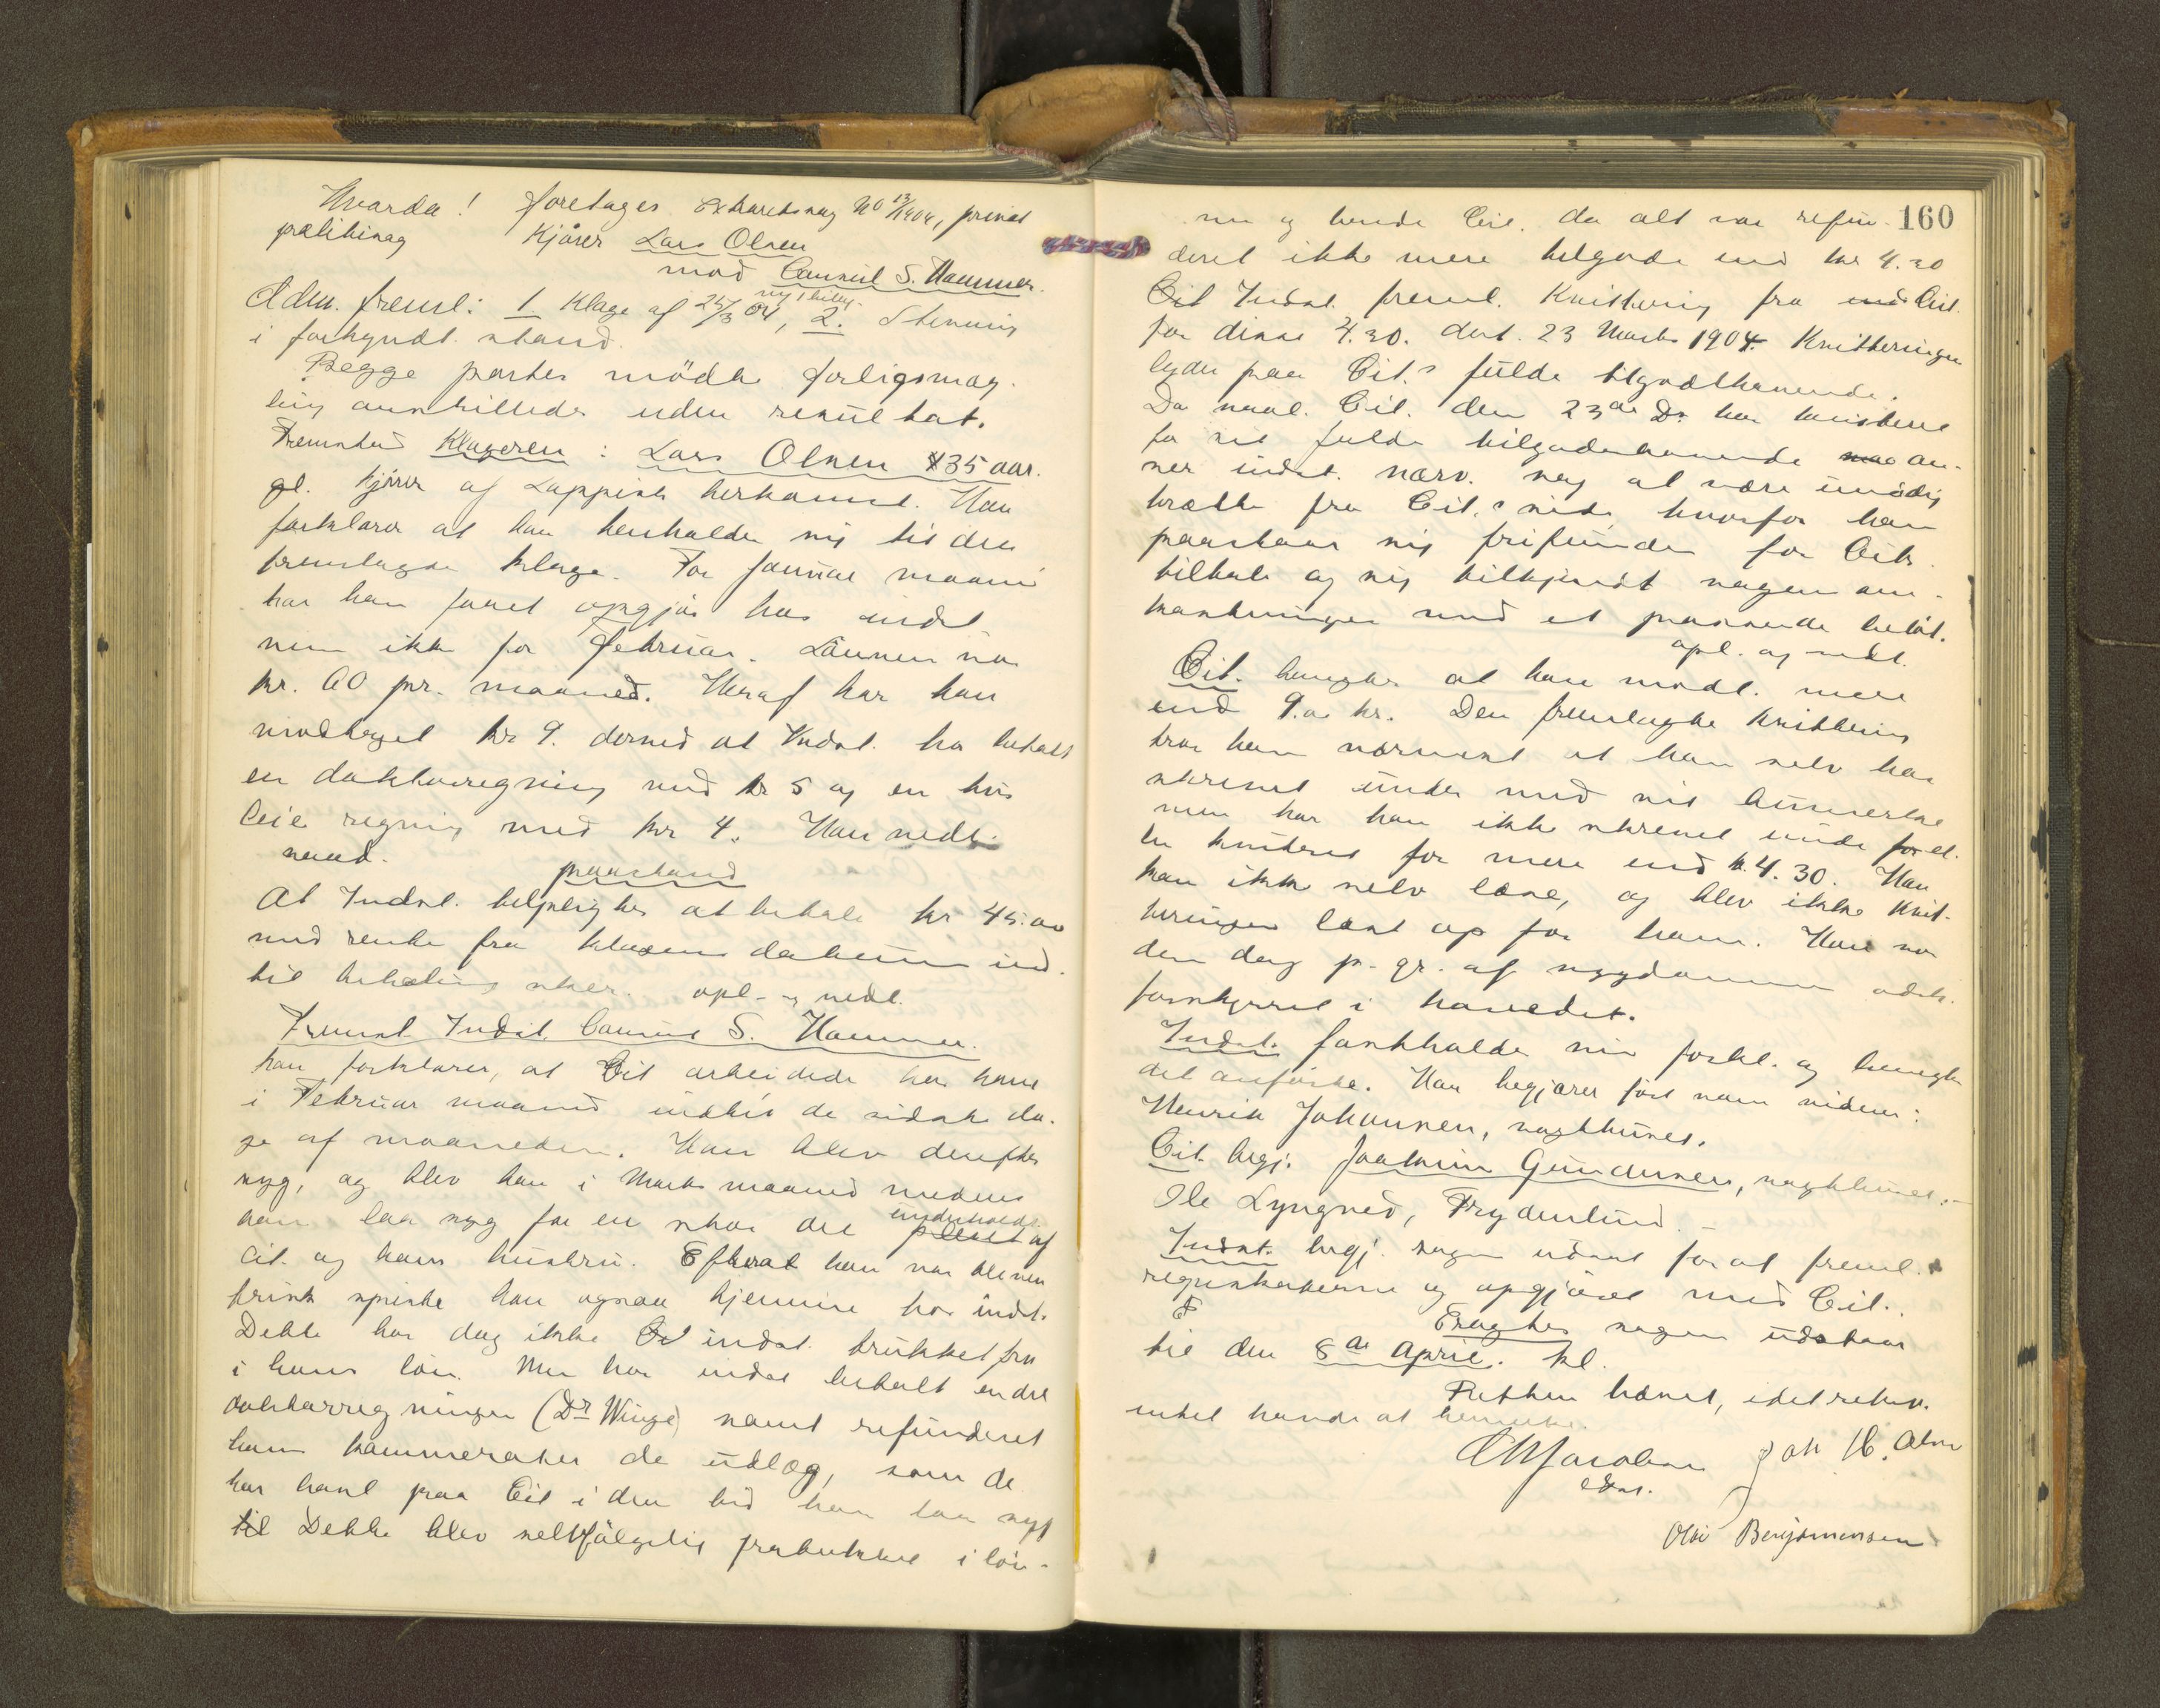 Hvorda! foretages Extraretssag No 13/1904, privat
politisag Kjører Lars Olsen
mod Consul S. Hammer.
Adm. freml: 1 Klage af 24/3 04, 2. Stevning
i forkyndt stand.
Begge parter mødte forligsmæg-
ling anstilledes uden resultat.
Fremstod Klageren: Lars Olsen 35 aar.
gl. kjører af Lappisk herkomst. Han
forklarer at han henholder sig til den
fremlagde klage. For Januar maaned
har han faaet opgjør hos indst
men ikke for Februar. Lønnen var
kr. 60 pr. maaned. Heraf har han
modtaget kr 9. derved at Indst. har betalt
en doktorregning med kr 5 og en hus
leie regning med kr 4. Han nedl.
saad.
paastand
At Indst. tilpligtes at betale kr 45.00
med rente fra klagens datum ind-
til betaling sker. opl. og vedt.
Fremst. Indst. Consul S. Hammer.
han forklarer, at Cit arbeidede hos ham
i Februar maaned indtil de sidste da-
ge af maaneden. Han blev derefter
syg, og blev han i Marts maaned medens
han laa syg for en stor del underholdt af
Cit. og hans hustru. Efterat han var bleven
frisk spiste han ogsaa hjemme hos indst.
Dette har dog ikke indst. trukket fra
i hans løn. Men har indst betalt en del
doktorregninger (Dr Winge) samt refunderet
hans kammerater de udlæg, som de
har havt paa Cit i den tid han laa syg
Dette blev selvfølgelig fratrukket i løn-
160
nen og havde Cit. da alt var refun-
deret ikke mere tilgode end kr 4.30
Indst. freml. Kvittering fra Cit.
for disse 4.30. dat. 23 Marts 1904. Kvitteringen
lyder paa Cit.s fulde tilgodehavende.
Da saal. Cit. den 23de Ds har kvitteret
for sit fulde tilgodehavende an-
ser indst. nærv. sag at være unødig
trætte fra Cit.s side, hvorfor han
paastaar sig frifunden for Cits
tiltale og sig tilkjendt sagens om-
kostninger med et passende beløb.
opl. og vedt.
Cit. benegter at have modt. mere
end 9.00 kr. Den fremlagte kvittering
tror han nærmest at han selv har
skrevet under med sit bumerke
men har han ikke skrevet under el-
ler kvitteret for mere end kr. 4.30. Han
kan ikke selv læse, og blev ikke kvit-
teringen læst op for ham. Han var
den dag p. gr. af sygdommen
forstyrret i hovedet.
Indst. fastholder sin forkl. og benegter
det anførte. Han begjærer ført som vidner:
Henrik Johansen, sagthuset.
Cit. begj. Joakim Gundersen, sagthuset.
Ole Lyngved, Frydenlund.
Indst. begj. sagen udsat for at freml.
regnskaberne og opgjøret med Cit.
Eragtes sagen udstaar
til den 8de April. kl.
Retten hævet, idet retten
intet havde at bemerke.
Joh H. Alm
Olai Benjaminsen